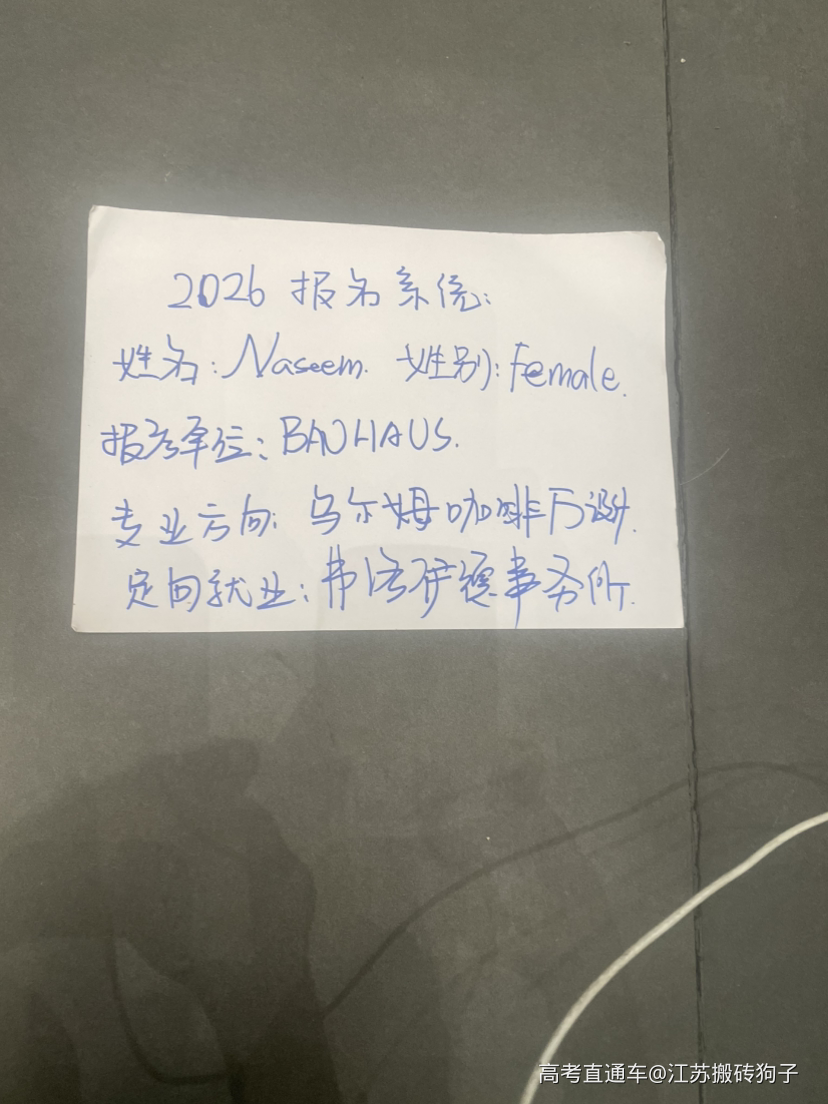 2026 报名系统:
姓名: Naseem. 姓别: Female.
报考单位: BAUHAUS.
专业方向: 乌尔姆咖啡厅设计.
定向就业: 事务所.
高考直通车@江苏搬砖狗子